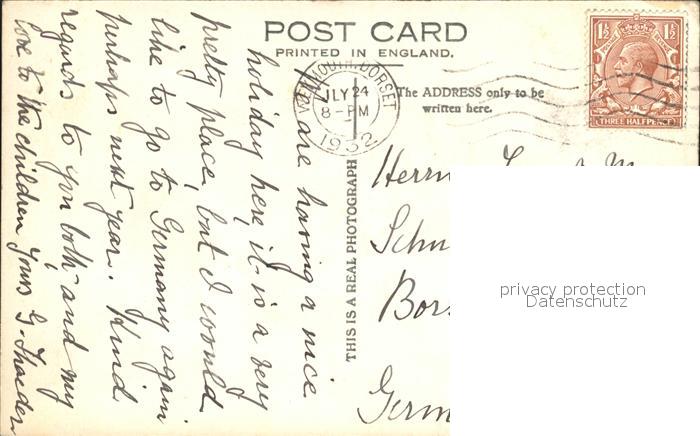 POST CARD
PRINTED IN ENGLAND.
The ADDRESS only to be
written here.
WEYMOUTH, DORSET
JLY 24
8-PM
1932
1½ 1½
THREE HALFPENCE
THIS IS A REAL PHOTOGRAPH
We are having a nice
holiday here, it is a very
pretty place, but I would
like to go to Germany again
perhaps next year. Kind
regards to you both, and my
love to the children Yours G.
Herrn
Germ
privacy protection
Datenschutz